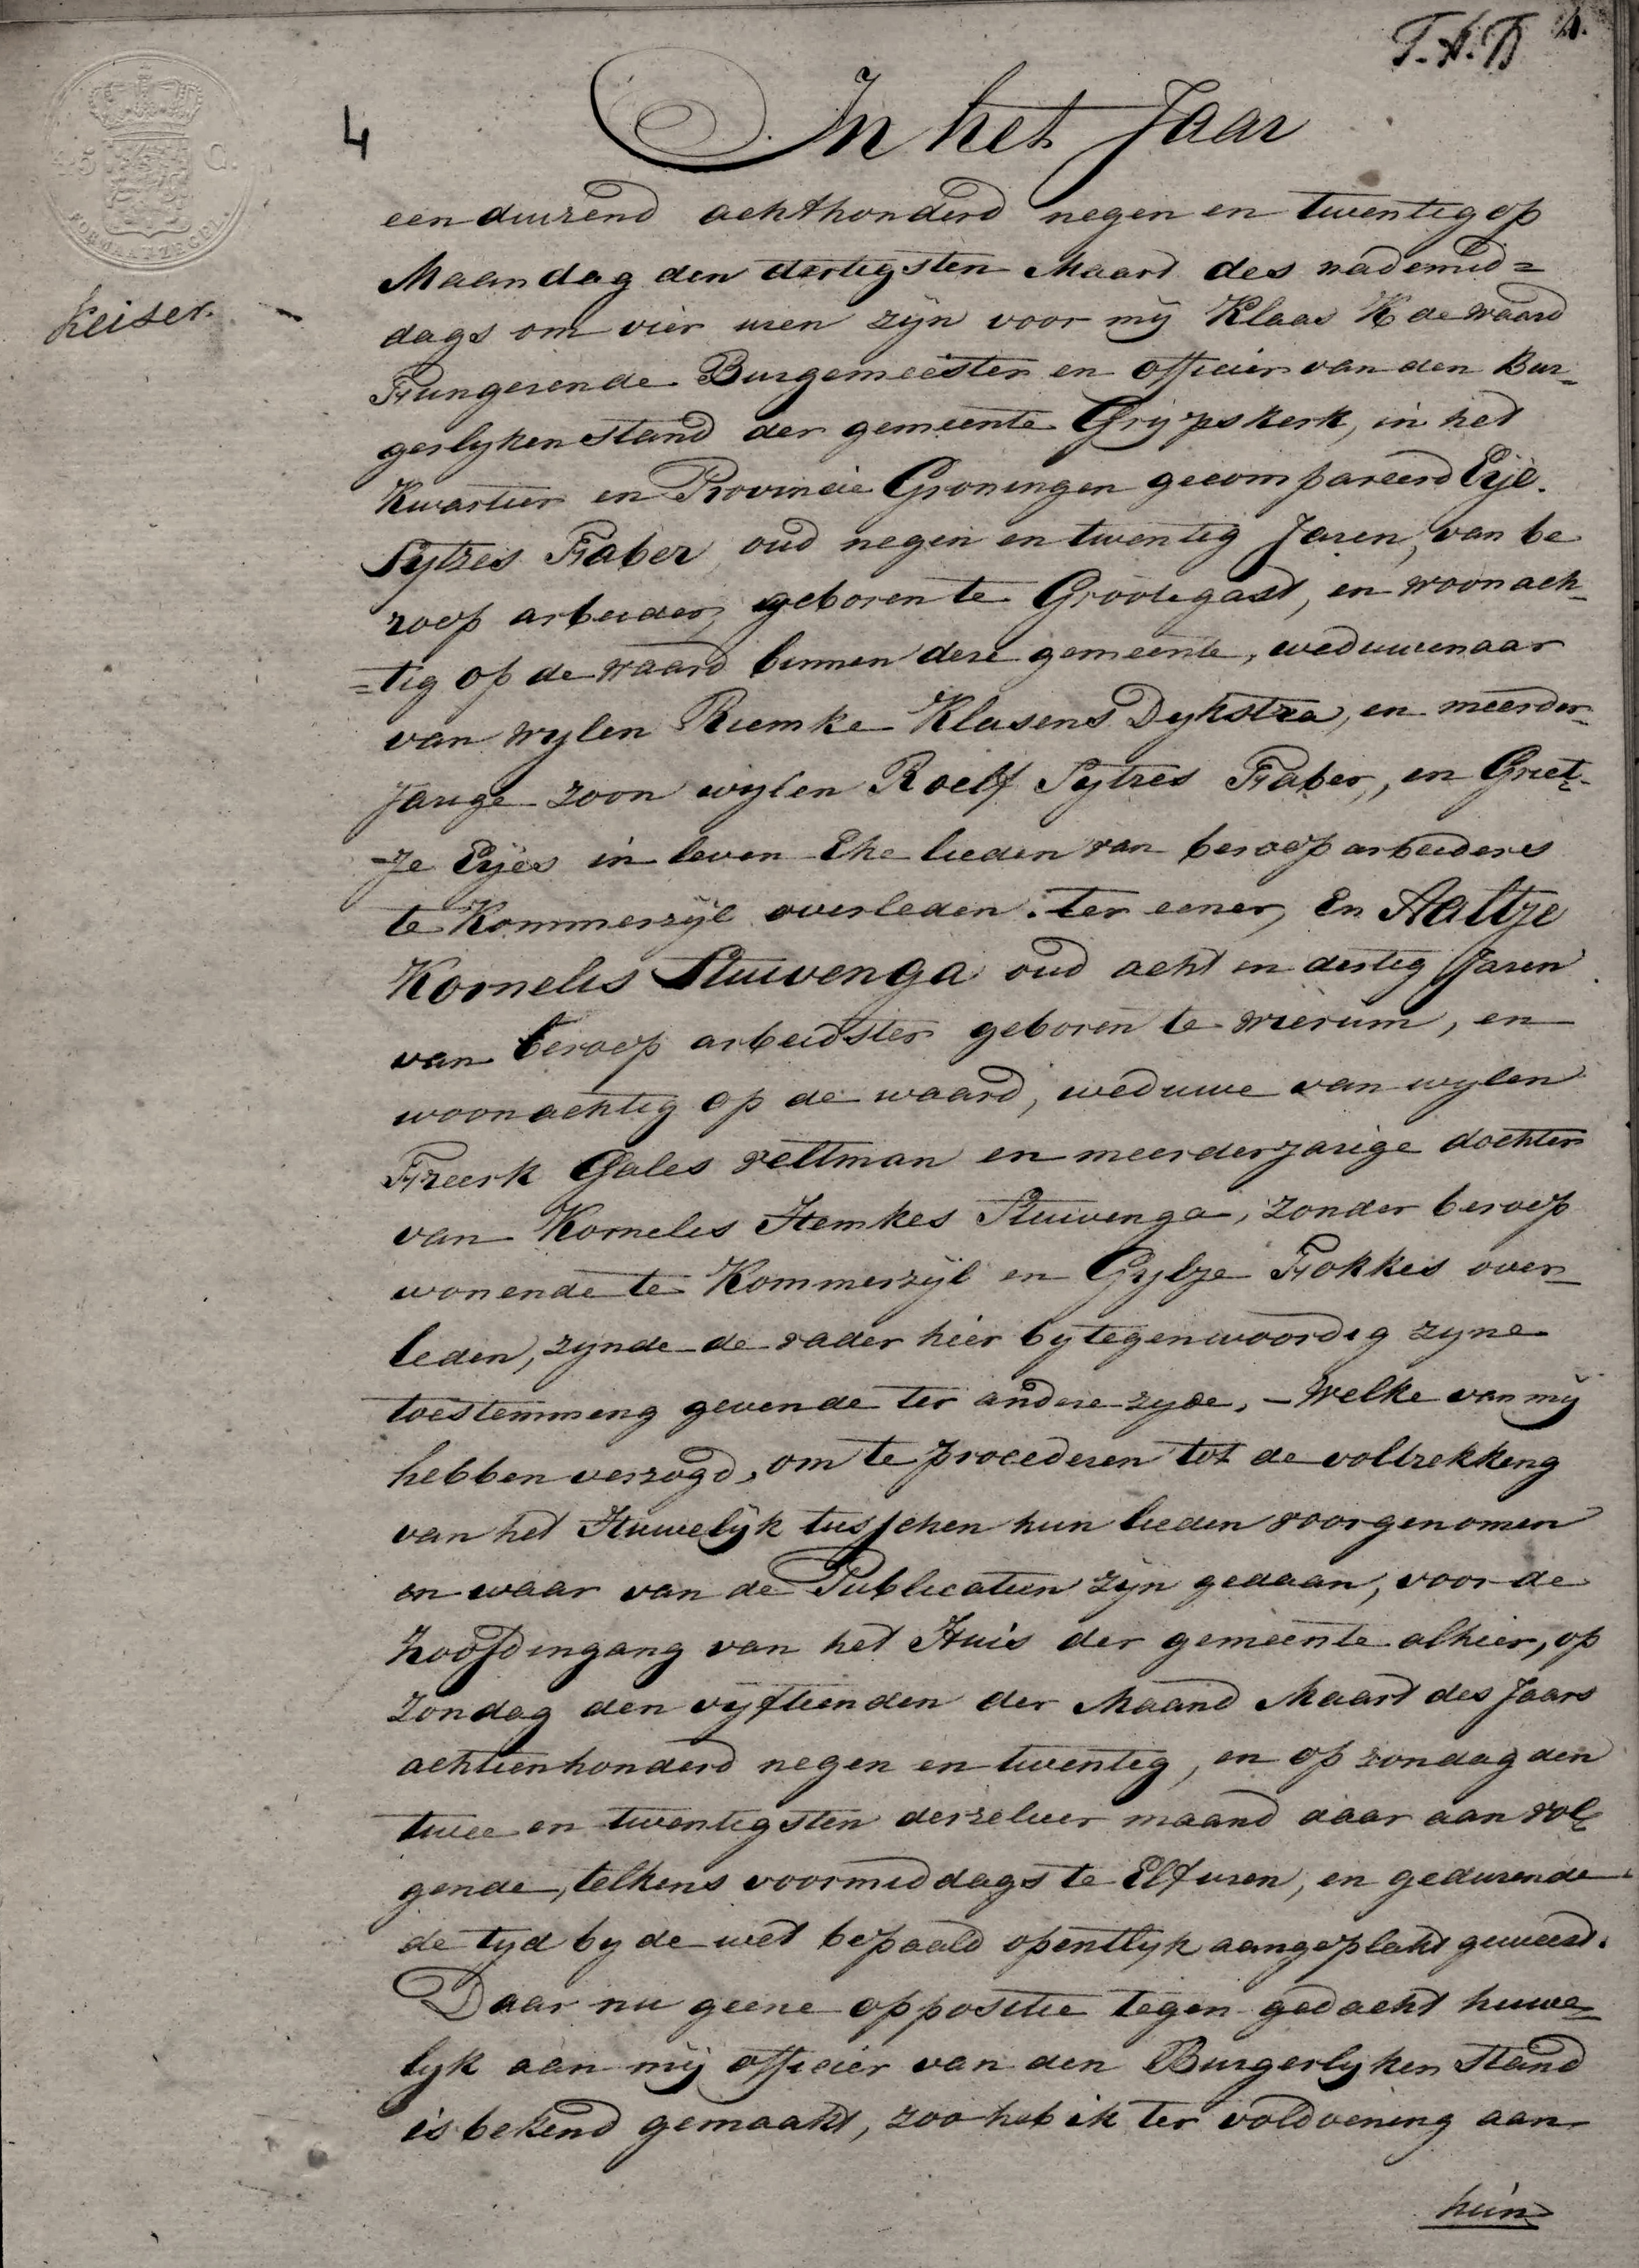 T.A.D 4.
4
In het Jaar
een duizend achthonderd negen en twentig op
Maandag den dertigsten Maart des nademid=
dags om vier uren zyn voor mij Klaas K de Waard
Fungerende Burgemeester en officier van den Bur-
gerlyken Stand der gemeente Grijpskerk, in het
Kwartier en Provincie Groningen gecompareerd Eije
Sytzes Faber, oud negen en twentig Jaren, van be
roep arbeider, geboren te Grootegast, en woonach-
=tig op de waard binnen deze gemeente, weduwenaar
van wylen Riemke Klasens Dykstra, en meerder-
Jarige zoon wylen Roelf Sytzes Faber, en Griet-
-Je Eijes in leven Ehe lieden van beroep arbeiders
te Kommerzijl overleden. ter eener, En Aaltje
Kornelis Stuivenga oud acht en dertig Jaren
van beroep arbeidster geboren te Wierum, en
woonachtig op de waard, weduwe van wylen
Freerk Gales Veltman en meerderjarige dochter
van Kornelis Hemkes Stuivenga, zonder beroep
wonende te Kommerzijl en Gylje Fokkes over-
leden, zynde de vader hier bytegenwoordig zyne
toestemming gevende ter andere zyde. - Welke van mij
hebben verzogd, om te procederen tot de voltrekking
van het Huwelijk tusschen hun lieden voorgenomen
en waar van de Publicatien zijn gedaan, voor de
hoofdingang van het Huis der gemeente alhier, op
Zondag den vijftienden der Maand Maart des Jaars
achtienhonderd negen en twentig, en op zondag den
twee en twentigsten derzelver maand daar aan vol-
gende, telkens voormiddags te Elf uren, en gedurende
de tyd by de wet bepaald opentlyk aangeplakt geweest.
Daar nu geene oppositie tegen gedacht huwe-
lyk aan mij officier van den Burgerlyken Stand
is bekend gemaakt, zoo heb ik ter voldoening aan
hun
Keiser.
G.
FORMAATZEGEL